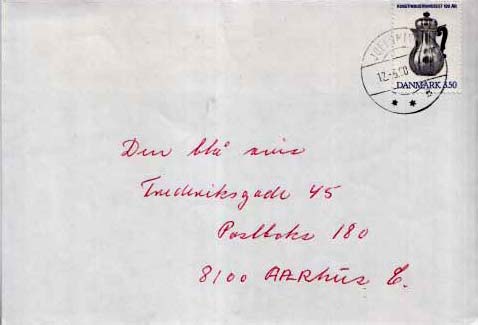 KUNSTINDUSTRIMUSEET 100 ÅR
DANMARK 3.50
Den blå avis
Frederiksgade 45
Postboks 180
8100 AARHUS C.